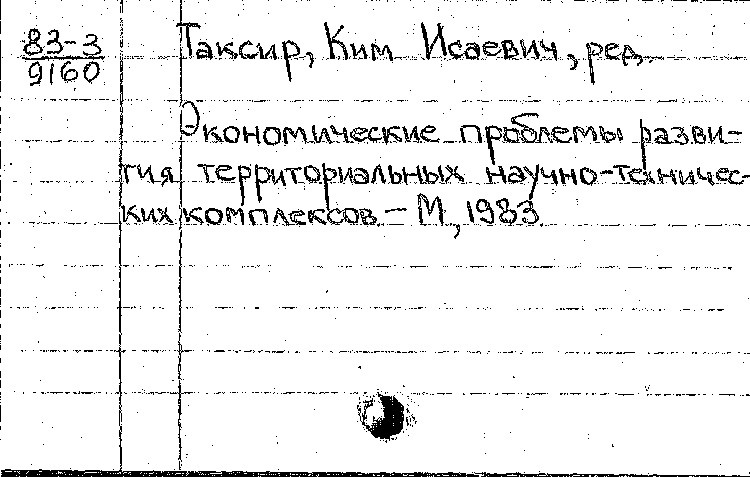 83-3
9160
Таксир, Ким Исаевич, ред.
Экономические проблемы разви-
тия территориальных научно-техничес-
ких комплексов. – М, 1983.